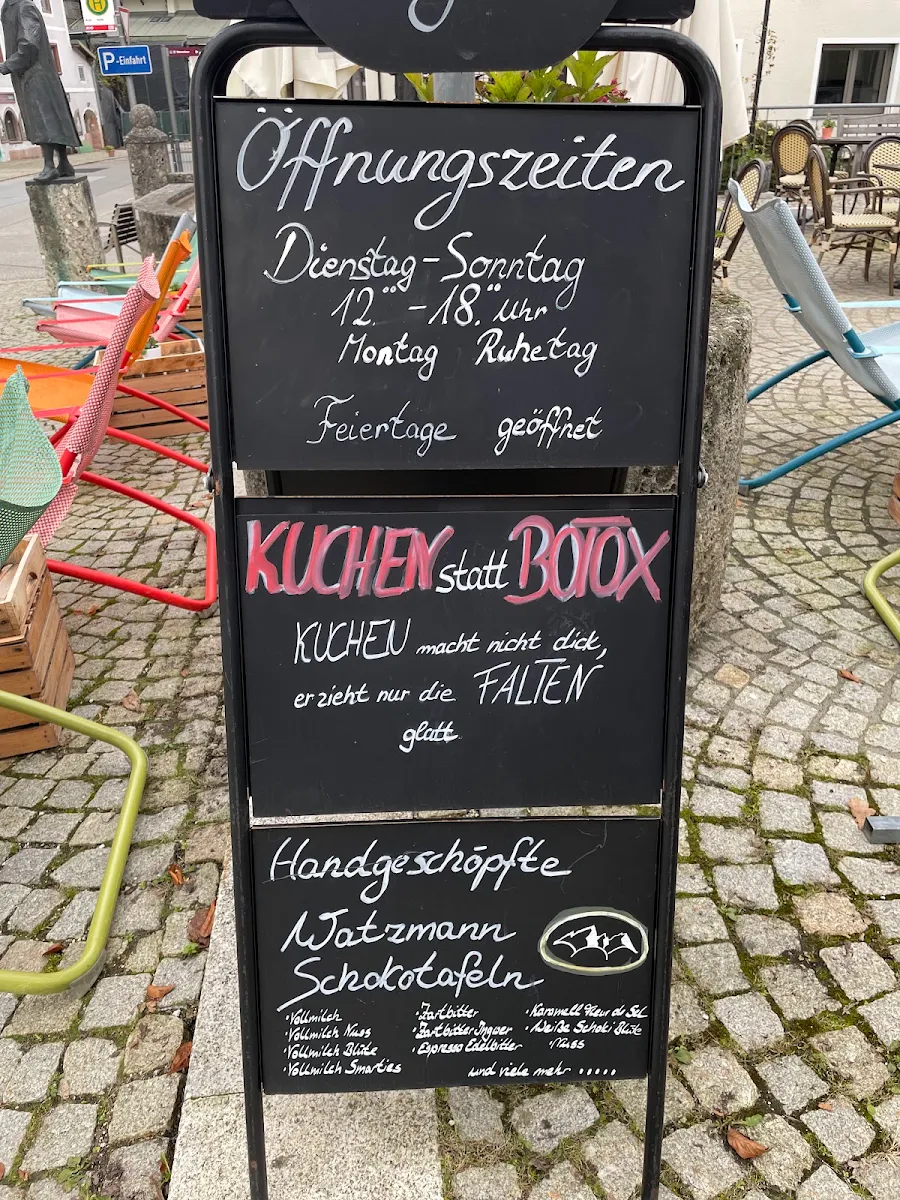 H
P-Einfahrt
Öffnungszeiten
Dienstag-Sonntag
12.°° -18.°° Uhr
Montag Ruhetag
Feiertage geöffnet
KUCHEN statt BOTOX
KUCHEN macht nicht dick,
er zieht nur die FALTEN
glatt
Handgeschöpfte
Watzmann
Schokotafeln
·Vollmilch
·Vollmilch Nuss
·Vollmilch Blüte
·Vollmilch Smarties
·Zartbitter
·Zartbitter Ingwer
·Espresso Edelbitter
·Karamell Fleur de Sel
·Weiße Schoki Blüte
Nuss
und viele mehr .....